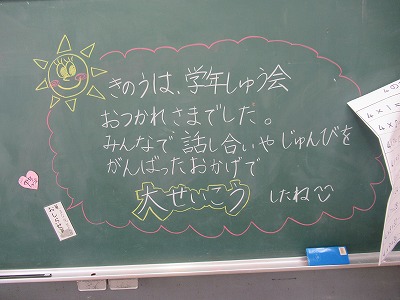 きのうは、学年しゅう会
おつかれさまでした。
みんなで話し合いやじゅんびを
がんばったおかげで
大せいこう したね